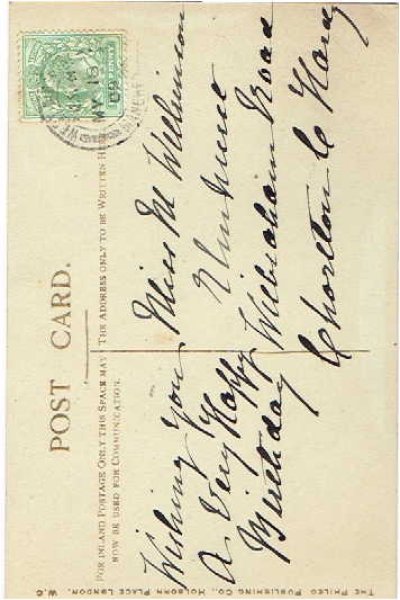 POST CARD.
FOR INLAND POSTAGE ONLY THIS SPACE MAY NOW BE USED FOR COMMUNICATION.
THE ADDRESS ONLY TO BE WRITTEN HE
MY 18
09
Wishing You
A Very Happy
Birthday
Miss M Wilkinson
Elmhurst
Wilbraham Road
Chorlton C Hardy
THE PHILCO PUBLISHING CO., HOLBORN PLACE LONDON. W.C